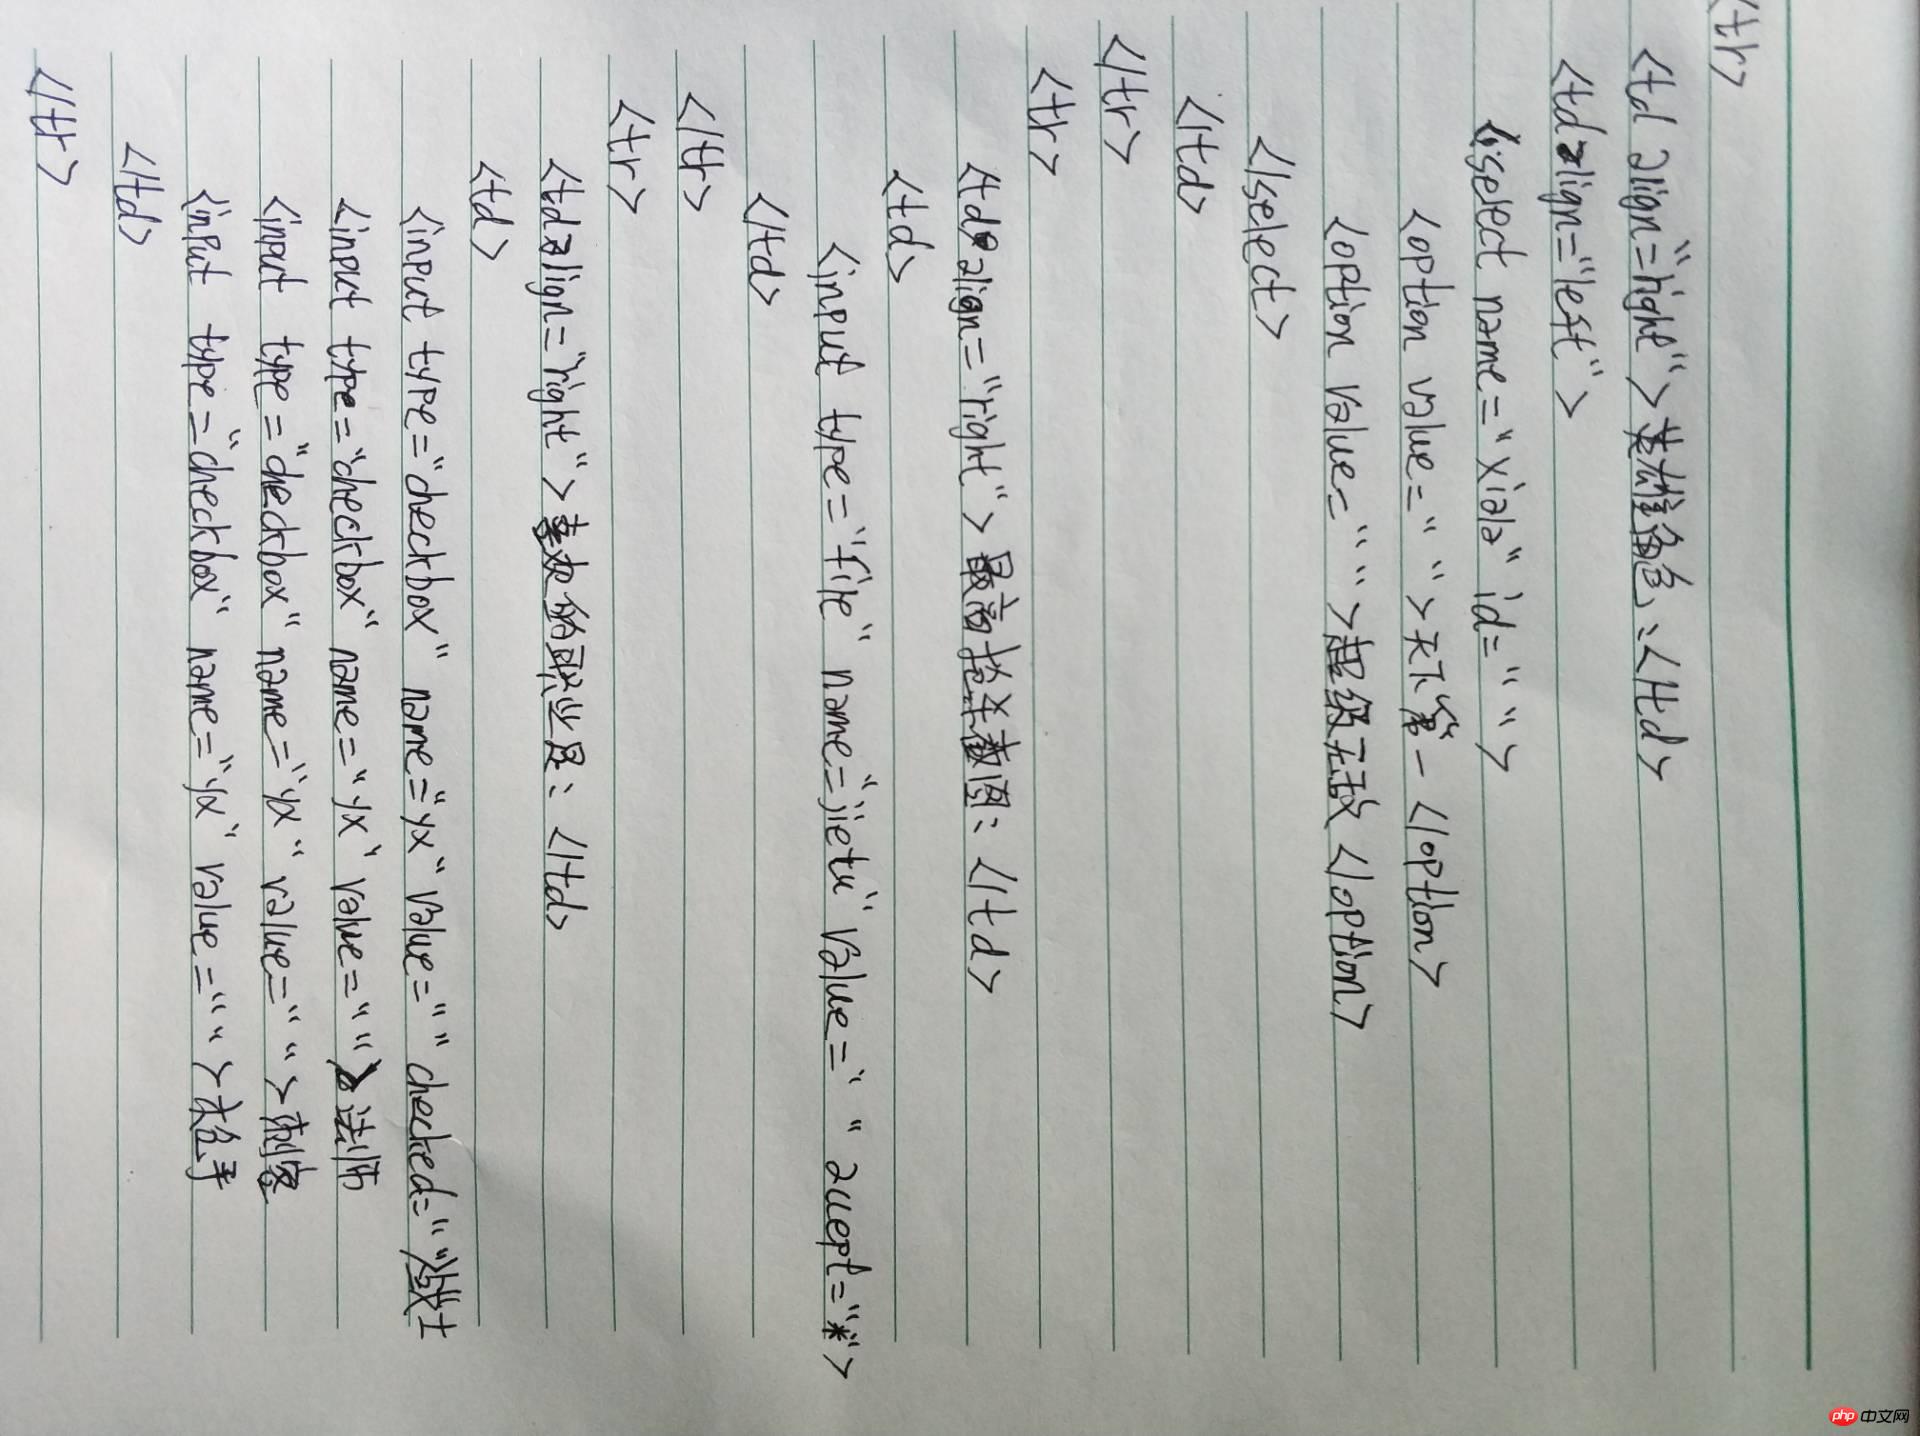 <tr>
<td align="right">英雄角色:</td>
<td align="left">
<select name="xiala" id="">
<option value="">天下第一</option>
<option value="">超级无敌</option>
</select>
</td>
</tr>
<tr>
<td align="right">最高抢杀截图:</td>
<td>
<input type="file" name="jietu" value="" accept="*">
</td>
</tr>
<tr>
<td align="right">喜欢的职业是:</td>
<td>
<input type="checkbox" name="yx" value="" checked="">战士
<input type="checkbox" name="yx" value="">法师
<input type="checkbox" name="yx" value="">刺客
<input type="checkbox" name="yx" value="">枪手
</td>
</tr>
php 中文网